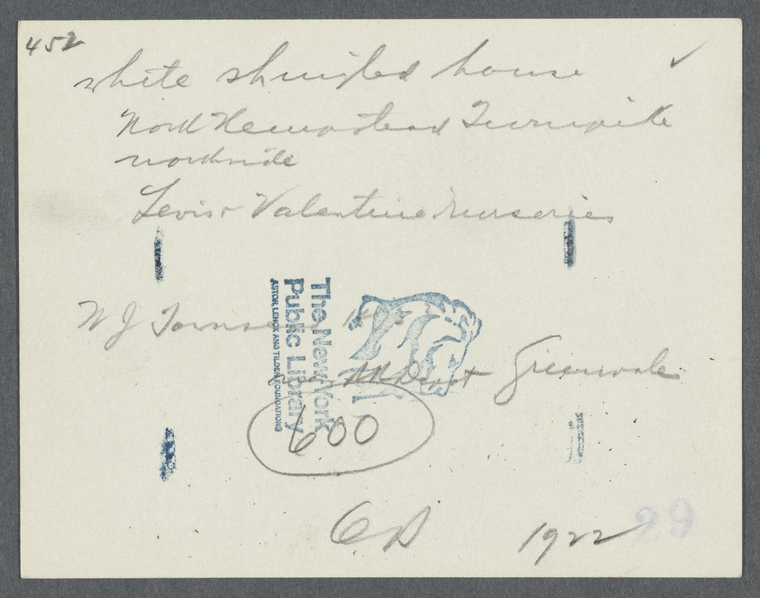 452
white shingled house ✓
North Hempstead Turnpike
northside
Lewis & Valentine Nurseries
W J Townsend
near RR Depot Greenvale
The New York
Public Library
ASTOR, LENOX AND TILDEN FOUNDATIONS
600
1922
29